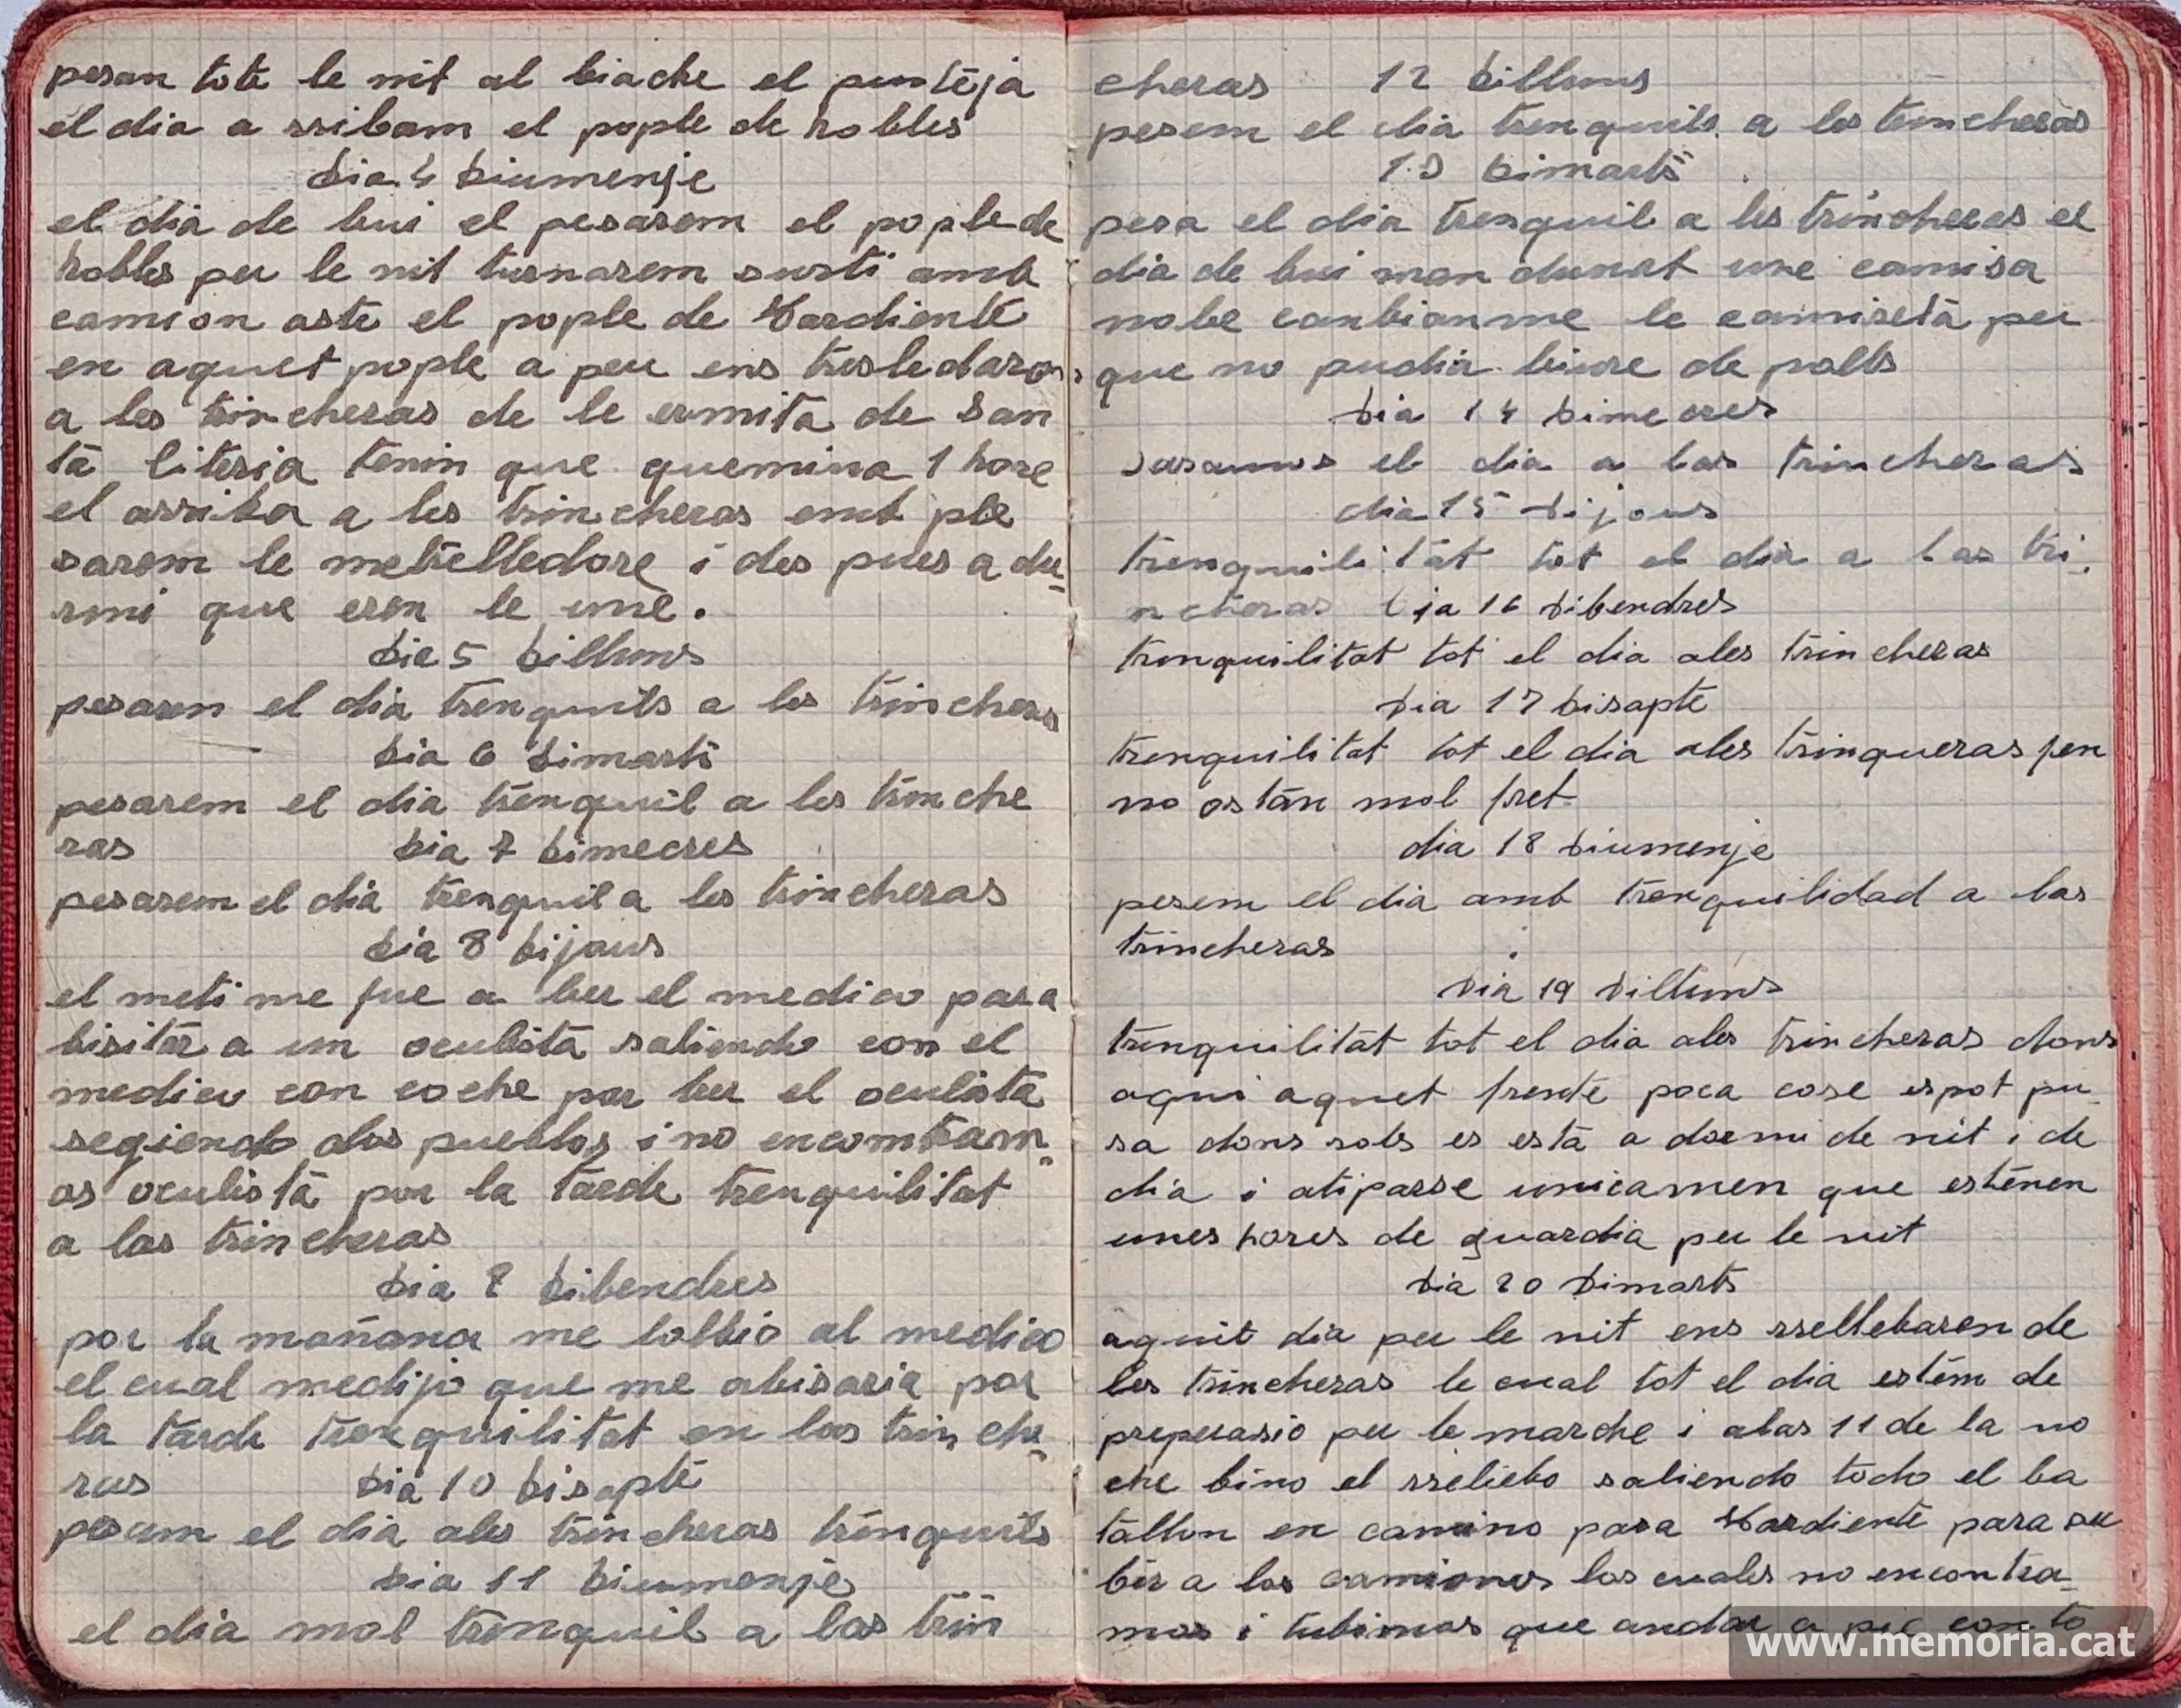 pesan tote le nit al biache el punteja
el dia a rribam el pople de robles
Dia 4 Diumenje
el dia de bui el pesarem el pople de
Robles per le nit turnarem surti amb
camion aste el pople de Tardiente
en aquet pople a peu ens tresledarons
a les trincheras de le ermita de San
ta literia tenin que quemina 1 hore
el arriba a les trincheras emb ple
sarem le metrelledore i des pues a du-
rmi que eren le une.
Die 5 Dilluns
pesarem el dia trenquils a les trincheras
Dia 6 Dimarts
pesarem el dia trenquil a les trinche
ras Dia 7 Dimecres
pesarem el dia trenquil a les trincheras
Dia 8 Dijous
el meti me fue a ber el medico para
bisitar a un oculista saliendo con el
medico con coche por ber el oculista
segiendo alos pueblos i no encontram-
os oculista por la tarde trenquilitat
a las trincheras
Dia 8 Dibendres
por la mañana me bolbio al medico
el cual medijo que me abisaria por
la tarde trenquilitat en las trinche-
ras Dia 10 Disapte
pesem el dia ales trincheras trenquils
Dia 11 Diumenje
el dia mol trenquil a las trin
cheras 12 Dilluns
pesem el dia trenquils a les trincheras
13 Dimarts
pesa el dia trenquil a les trincheres el
dia de bui man dunat une camisa
nobe canbianme le camiseta per
que no pudia biure de polls
Dia 14 Dimecres
pasamos el dia a las trincheras
dia 15 Dijous
trenquilitat tot el dia a las tri-
ncheras Dia 16 Dibendres
trenquilitat tot el dia ales trincheras
Dia 17 Disapte
trenquilitat tot el dia ales trinqueras fen
no ostan mol fret
dia 18 Diumenje
pesem el dia amb trenquilidad a las
trincheras
Dia 19 Dilluns
trenquilitat tot el dia ales trincheras dons
aqui aquet frente poca cose espot pu-
sa dons sols es esta a dormi de nit i de
dia i atiparse unicamen que estenen
unes hores de guardia per le nit
Dia 20 Dimarts
aquit dia per le nit ens rrellebaren de
les trincheras le cual tot el dia estem de
preperasio per le marche i alas 11 de la no
che bino el rreliebo saliendo todo el ba
tallon en camino para Tardiente para su
bir a los camiones los cuales no encontra-
mos i tubimos que andar a pie con to
www.memoria.cat